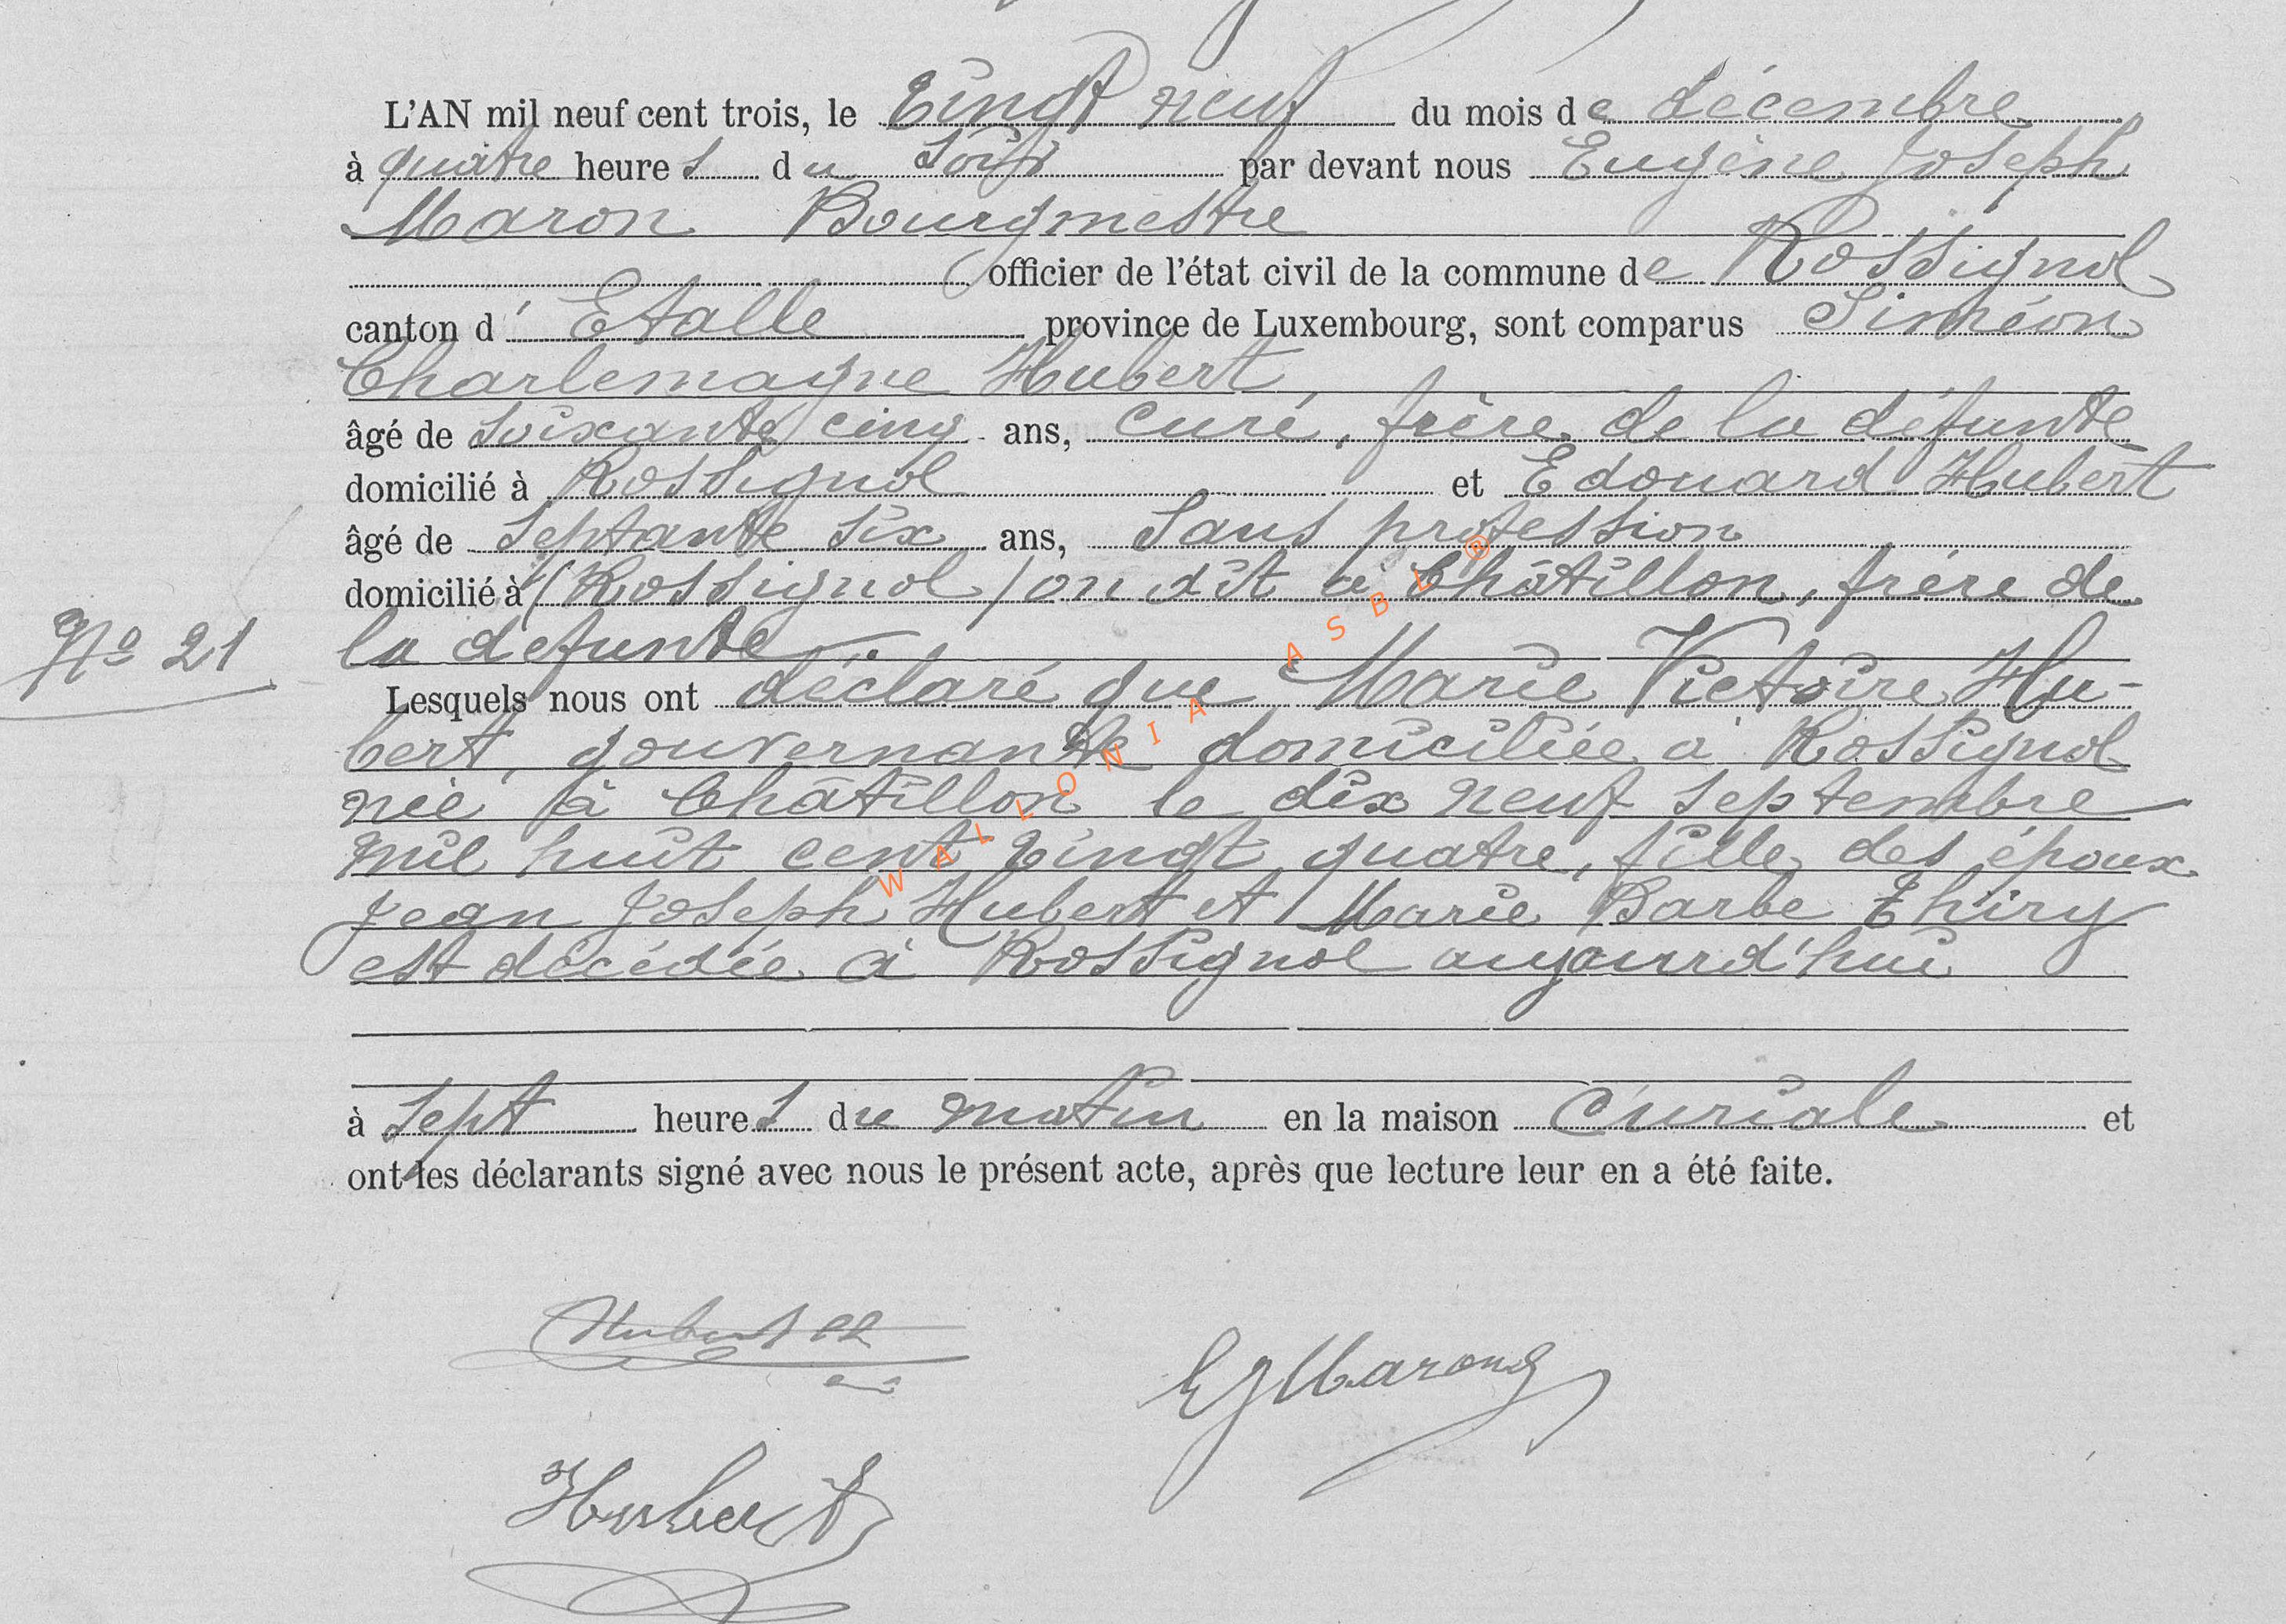 L'AN mil neuf cent trois, le Vingt neuf du mois de décembre
à quatre heures du Soir par devant nous Eugène Joseph
Maron Bourgmestre
officier de l'état civil de la commune de Rossignol
canton d'Etalle province de Luxembourg, sont comparus Siméon
Charlemagne Hubert
âgé de Soixante cinq ans, curé, frère de la défunte
domicilié à Rossignol et Edouard Hubert
âgé de Septante Six ans, Sans profession
domicilié à (Rossignol) on dit à Châtillon, frère de
la défunte.
Nº 21
Lesquels nous ont déclaré que Marie Victoire Hu-
bert, gouvernante domiciliée à Rossignol
née à Châtillon le dix neuf Septembre
mil huit cent vingt quatre, fille des époux
Jean Joseph Hubert et Marie Barbe Thiry
est décédée à Rossignol aujourd'hui
à Sept heures du matin en la maison Curiale et
ont les déclarants signé avec nous le présent acte, après que lecture leur en a été faite.
Hubert
EJMaron
Hubert
WALLONIA ASBL ®